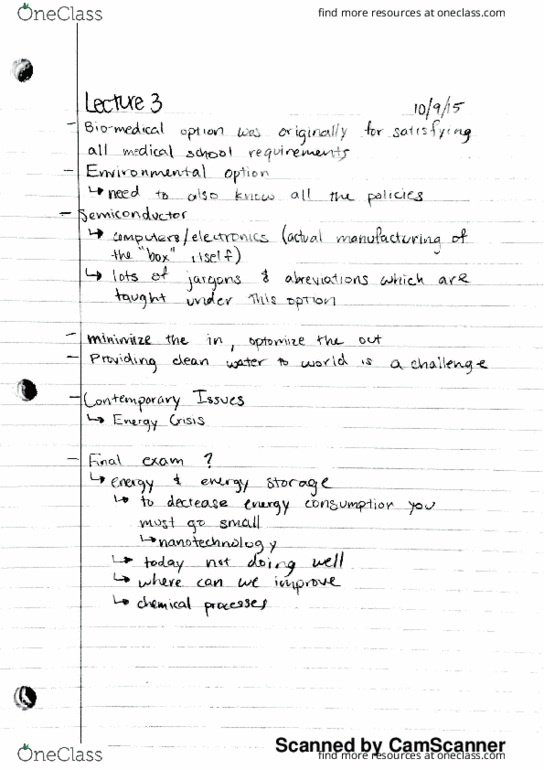 OneClass
find more resources at oneclass.com
Lecture 3
10/9/15
- Bio-medical option was originally for satisfying
all medical school requirements
- Environmental option
↳ need to also know all the policies
- Semiconductor
↳ computers/electronics (actual manufacturing of
the "box" itself)
↳ lots of jargons & abreviations which are
taught under this option
- minimize the in, optomize the out
- Providing clean water to world is a challenge
- Contemporary Issues
↳ Energy Crisis
- Final exam ?
↳ energy & energy storage
↳ to decrease energy consumption you
must go small
↳ nanotechnology
↳ today not doing well
↳ where can we improve
↳ chemical processes
Scanned by CamScanner
OneClass
find more resources at oneclass.com